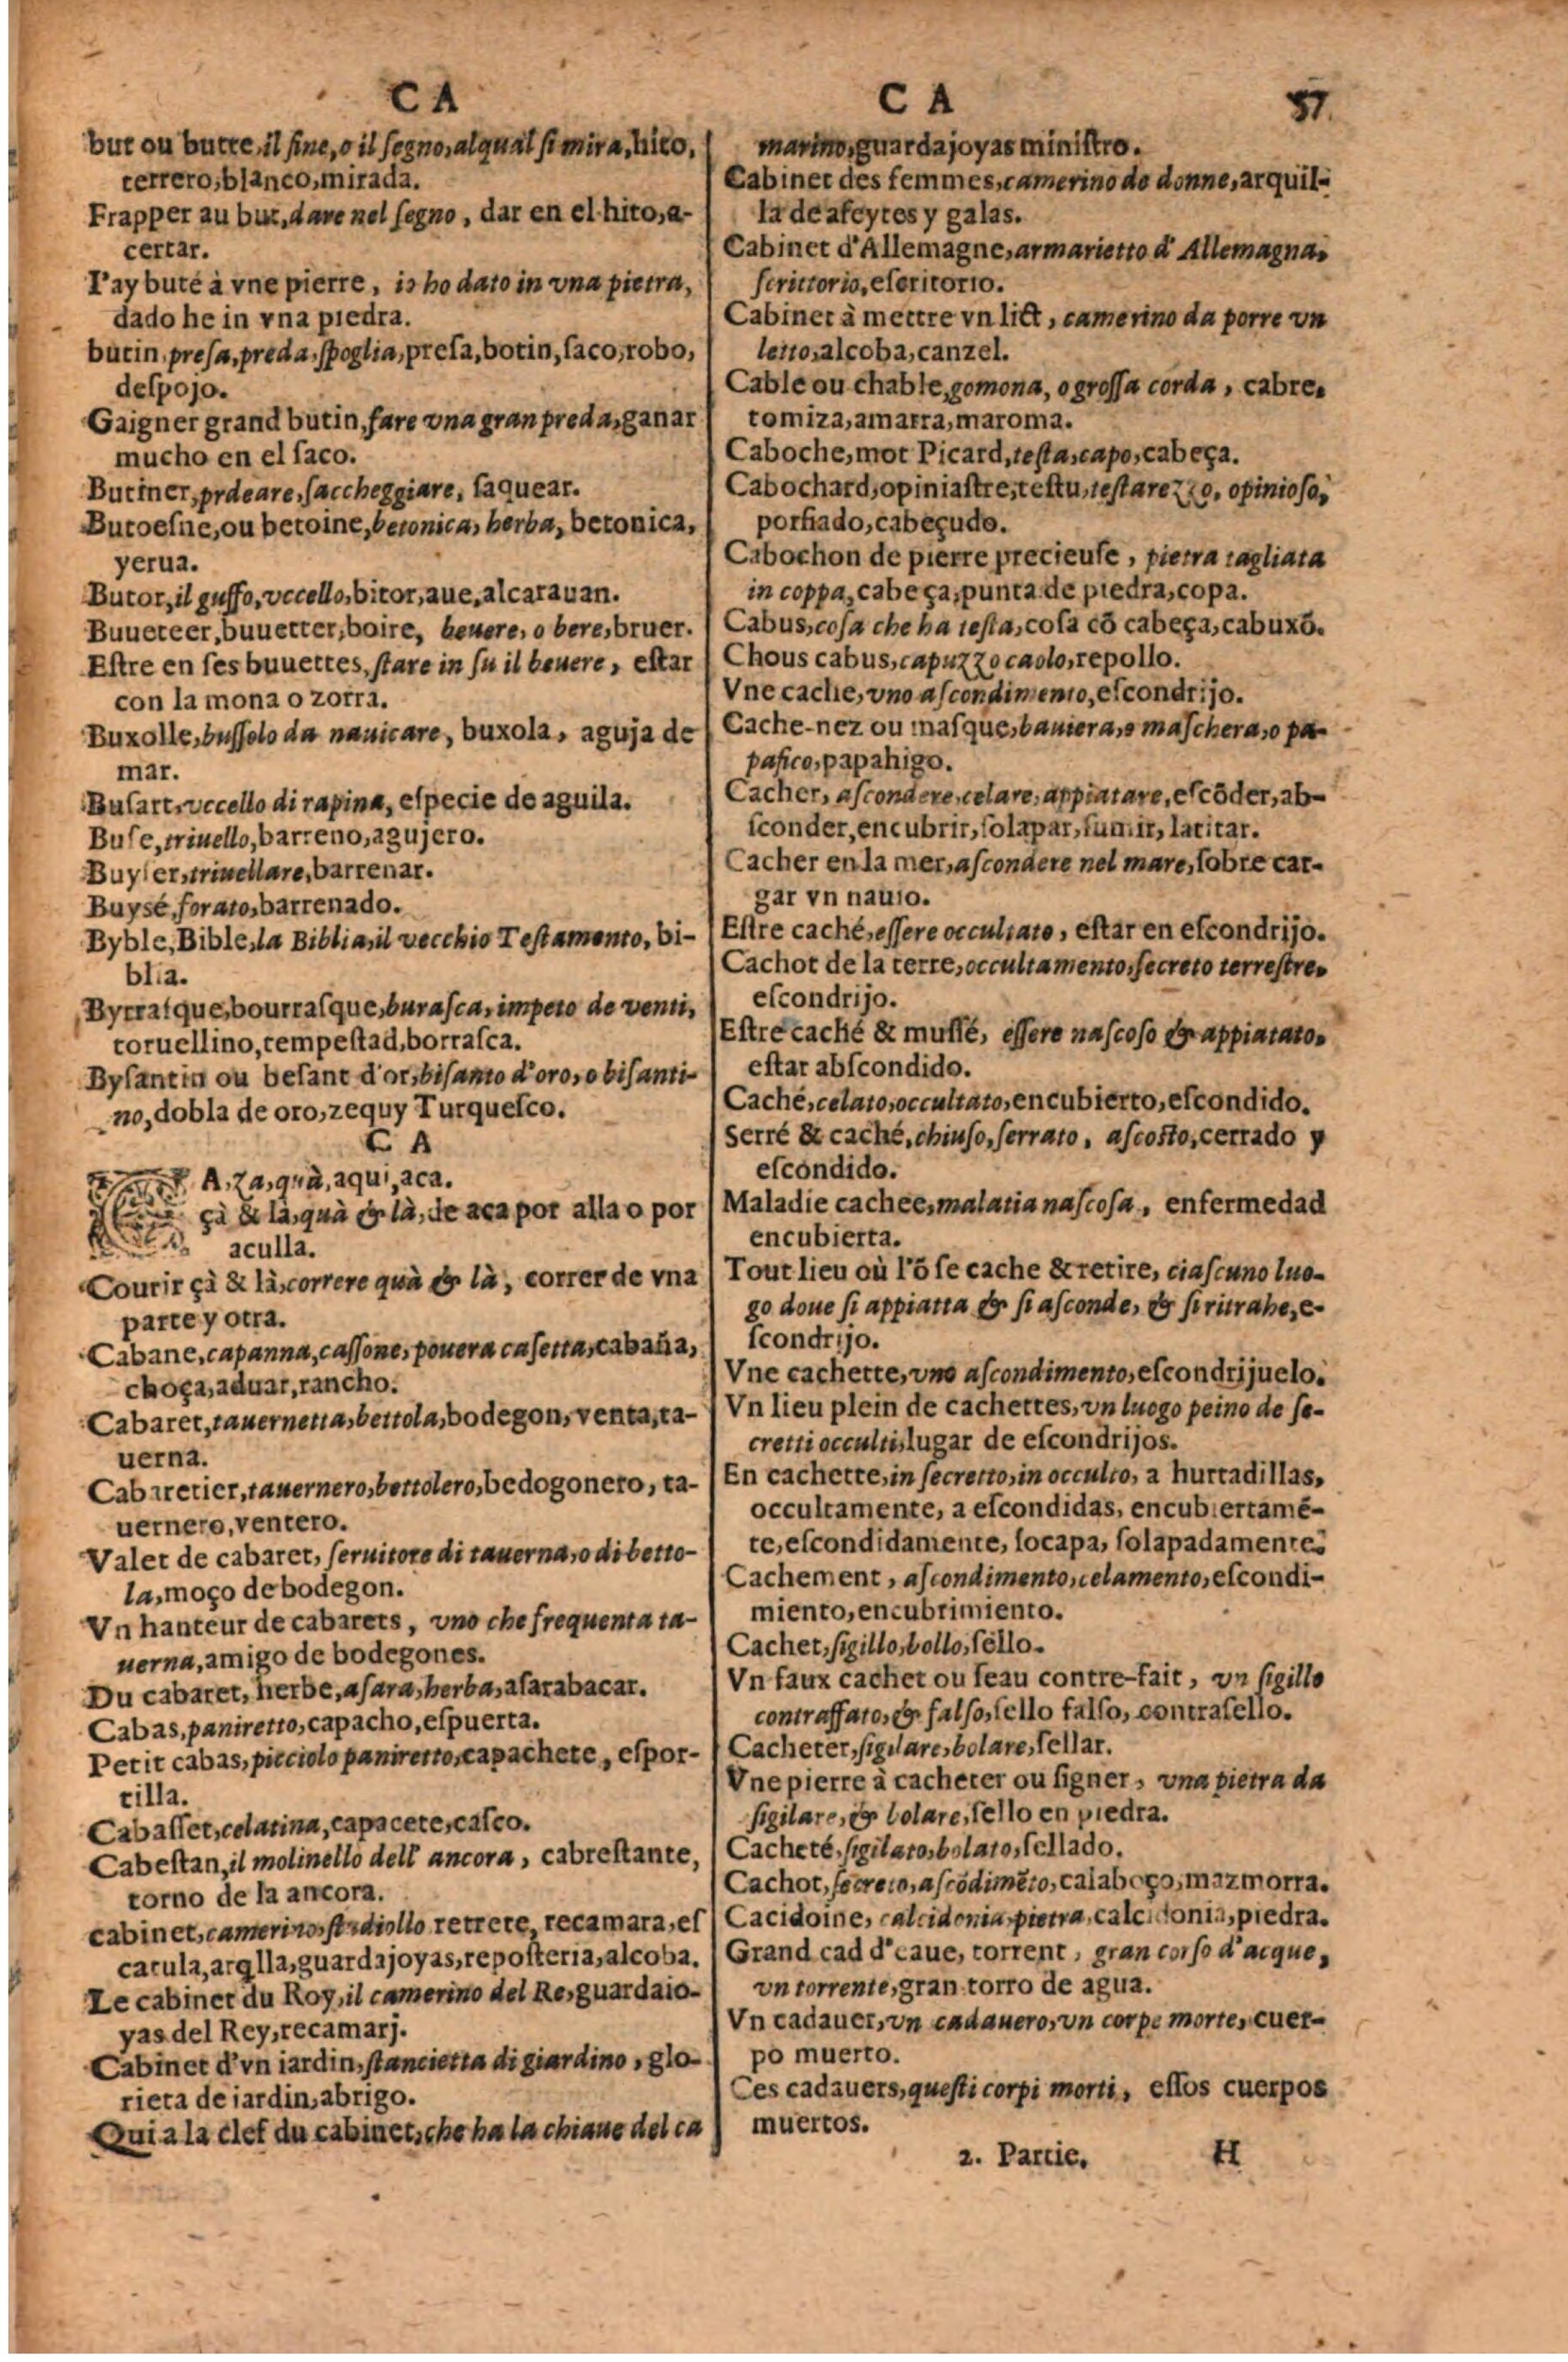 C A
but ou butte, il fine, o il segno, al qual si mira, hito,
terrero, blanco, mirada.
Frapper au but, dare nel segno, dar en el hito, a-
certar.
I'ay buté à vne pierre, io ho dato in vna pietra,
dado he in vna piedra.
butin, presa, preda, spoglia, presa, botin, saco, robo,
despojo.
Gaigner grand butin, fare vna gran preda, ganar
mucho en el saco.
Butiner, prdeare, saccheggiare, saquear.
Butoesne, ou betoine, betonica, herba, betonica,
yerua.
Butor, il guffo, vccello, bitor, aue, alcarauan.
Buueteer, buuetter, boire, beuere, o bere, bruer.
Estre en ses buuettes, stare in su il beuere, estar
con la mona o zorra.
Buxolle, bussolo da nauicare, buxola, aguja de
mar.
Busart, vccello di rapina, especie de aguila.
Buse, triuello, barreno, agujero.
Buyser, triuellare, barrenar.
Buysé, forato, barrenado.
Byble, Bible, la Biblia, il vecchio Testamento, bi-
blia.
Byrrasque, bourrasque, burasca, impeto de venti,
toruellino, tempestad, borrasca.
Bysantin ou besant d'or, bisanto d'oro, o bisanti-
no, dobla de oro, zequy Turquesco.
C A
ÇA, za, quà, aqui, aca.
çà & là, quà & là, de aca por alla o por
aculla.
Courir çà & là, correre quà & là, correr de vna
parte y otra.
Cabane, capanna, cassone, pouera casetta, cabaña,
choça, aduar, rancho.
Cabaret, tauernetta, bettola, bodegon, venta, ta-
uerna.
Cabaretier, tauernero, bettolero, bedogonero, ta-
uernero, ventero.
Valet de cabaret, seruitore di tauerna, o di betto-
la, moço de bodegon.
Vn hanteur de cabarets, vno che frequenta ta-
uerna, amigo de bodegones.
Du cabaret, herbe, asara, herba, asarabacar.
Cabas, paniretto, capacho, espuerta.
Petit cabas, picciolo paniretto, capachete, espor-
tilla.
Cabasset, celatina, capacete, casco.
Cabestan, il molinello dell' ancora, cabrestante,
torno de la ancora.
cabinet, camerino, studiollo retrete, recamara, es
catula, arqlla, guardajoyas, reposteria, alcoba.
Le cabinet du Roy, il camerino del Re, guardaio-
yas del Rey, recamarj.
Cabinet d'vn iardin, stancietta di giardino, glo-
rieta de iardin, abrigo.
Qui a la clef du cabinet, che ha la chiaue del ca
C A 57.
marino, guardajoyas ministro.
Cabinet des femmes, camerino de donne, arquil-
la de afeytes y galas.
Cabinet d'Allemagne, armarietto d'Allemagna,
scrittorio, escritorio.
Cabinet à mettre vn lict, camerino da porre vn
letto, alcoba, canzel.
Cable ou chable, gomona, o grossa corda, cabre,
tomiza, amarra, maroma.
Caboche, mot Picard, testa, capo, cabeça.
Cabochard, opiniastre, testu, testarezzo, opinioso,
porfiado, cabeçudo.
Cabochon de pierre precieuse, pietra tagliata
in coppa, cabeça, punta de piedra, copa.
Cabus, cosa che ha testa, cosa cõ cabeça, cabuxõ.
Chous cabus, capuzzo caolo, repollo.
Vne cache, vno ascondimento, escondrijo.
Cache-nez ou masque, bauiera, o maschera, o pa-
pafico, papahigo.
Cacher, ascondere, celare, appiatare, escõder, ab-
sconder, encubrir, solapar, sumir, latitar.
Cacher en la mer, ascondere nel mare, sobre car-
gar vn nauio.
Estre caché, essere occultato, estar en escondrijo.
Cachot de la terre, occultamento, secreto terrestre,
escondrijo.
Estre caché & mussé, essere nascoso & appiatato,
estar abscondido.
Caché, celato, occultato, encubierto, escondido.
Serré & caché, chiuso, serrato, ascosto, cerrado y
escondido.
Maladie cachee, malatia nascosa, enfermedad
encubierta.
Tout lieu où l'õ se cache & retire, ciascuno luo-
go doue si appiatta & si asconde, & si ritrahe, e-
scondrijo.
Vne cachette, vno ascondimento, escondrijuelo.
Vn lieu plein de cachettes, vn luogo peino de se-
cretti occulti, lugar de escondrijos.
En cachette, in secretto, in occulto, a hurtadillas,
occultamente, a escondidas, encubiertamẽ-
te, escondidamente, socapa, solapadamente.
Cachement, ascondimento, celamento, escondi-
miento, encubrimiento.
Cachet, sigillo, bollo, sello.
Vn faux cachet ou seau contre-fait, vn sigillo
contraffato, & falso, sello falso, contrasello.
Cacheter, sigilare, bolare, sellar.
Vne pierre à cacheter ou signer, vna pietra da
sigilare, & bolare, sello en piedra.
Cacheté, sigilato, bolato, sellado.
Cachot, secreto, ascõdimẽto, calaboço, mazmorra.
Cacidoine, calcidonia, pietra, calcidonia, piedra.
Grand cad d'eaue, torrent, gran corso d'acque,
vn torrente, gran torro de agua.
Vn cadauer, vn cadauero, vn corpe morte, cuer-
po muerto.
Ces cadauers, questi corpi morti, essos cuerpos
muertos.
2. Partie. H